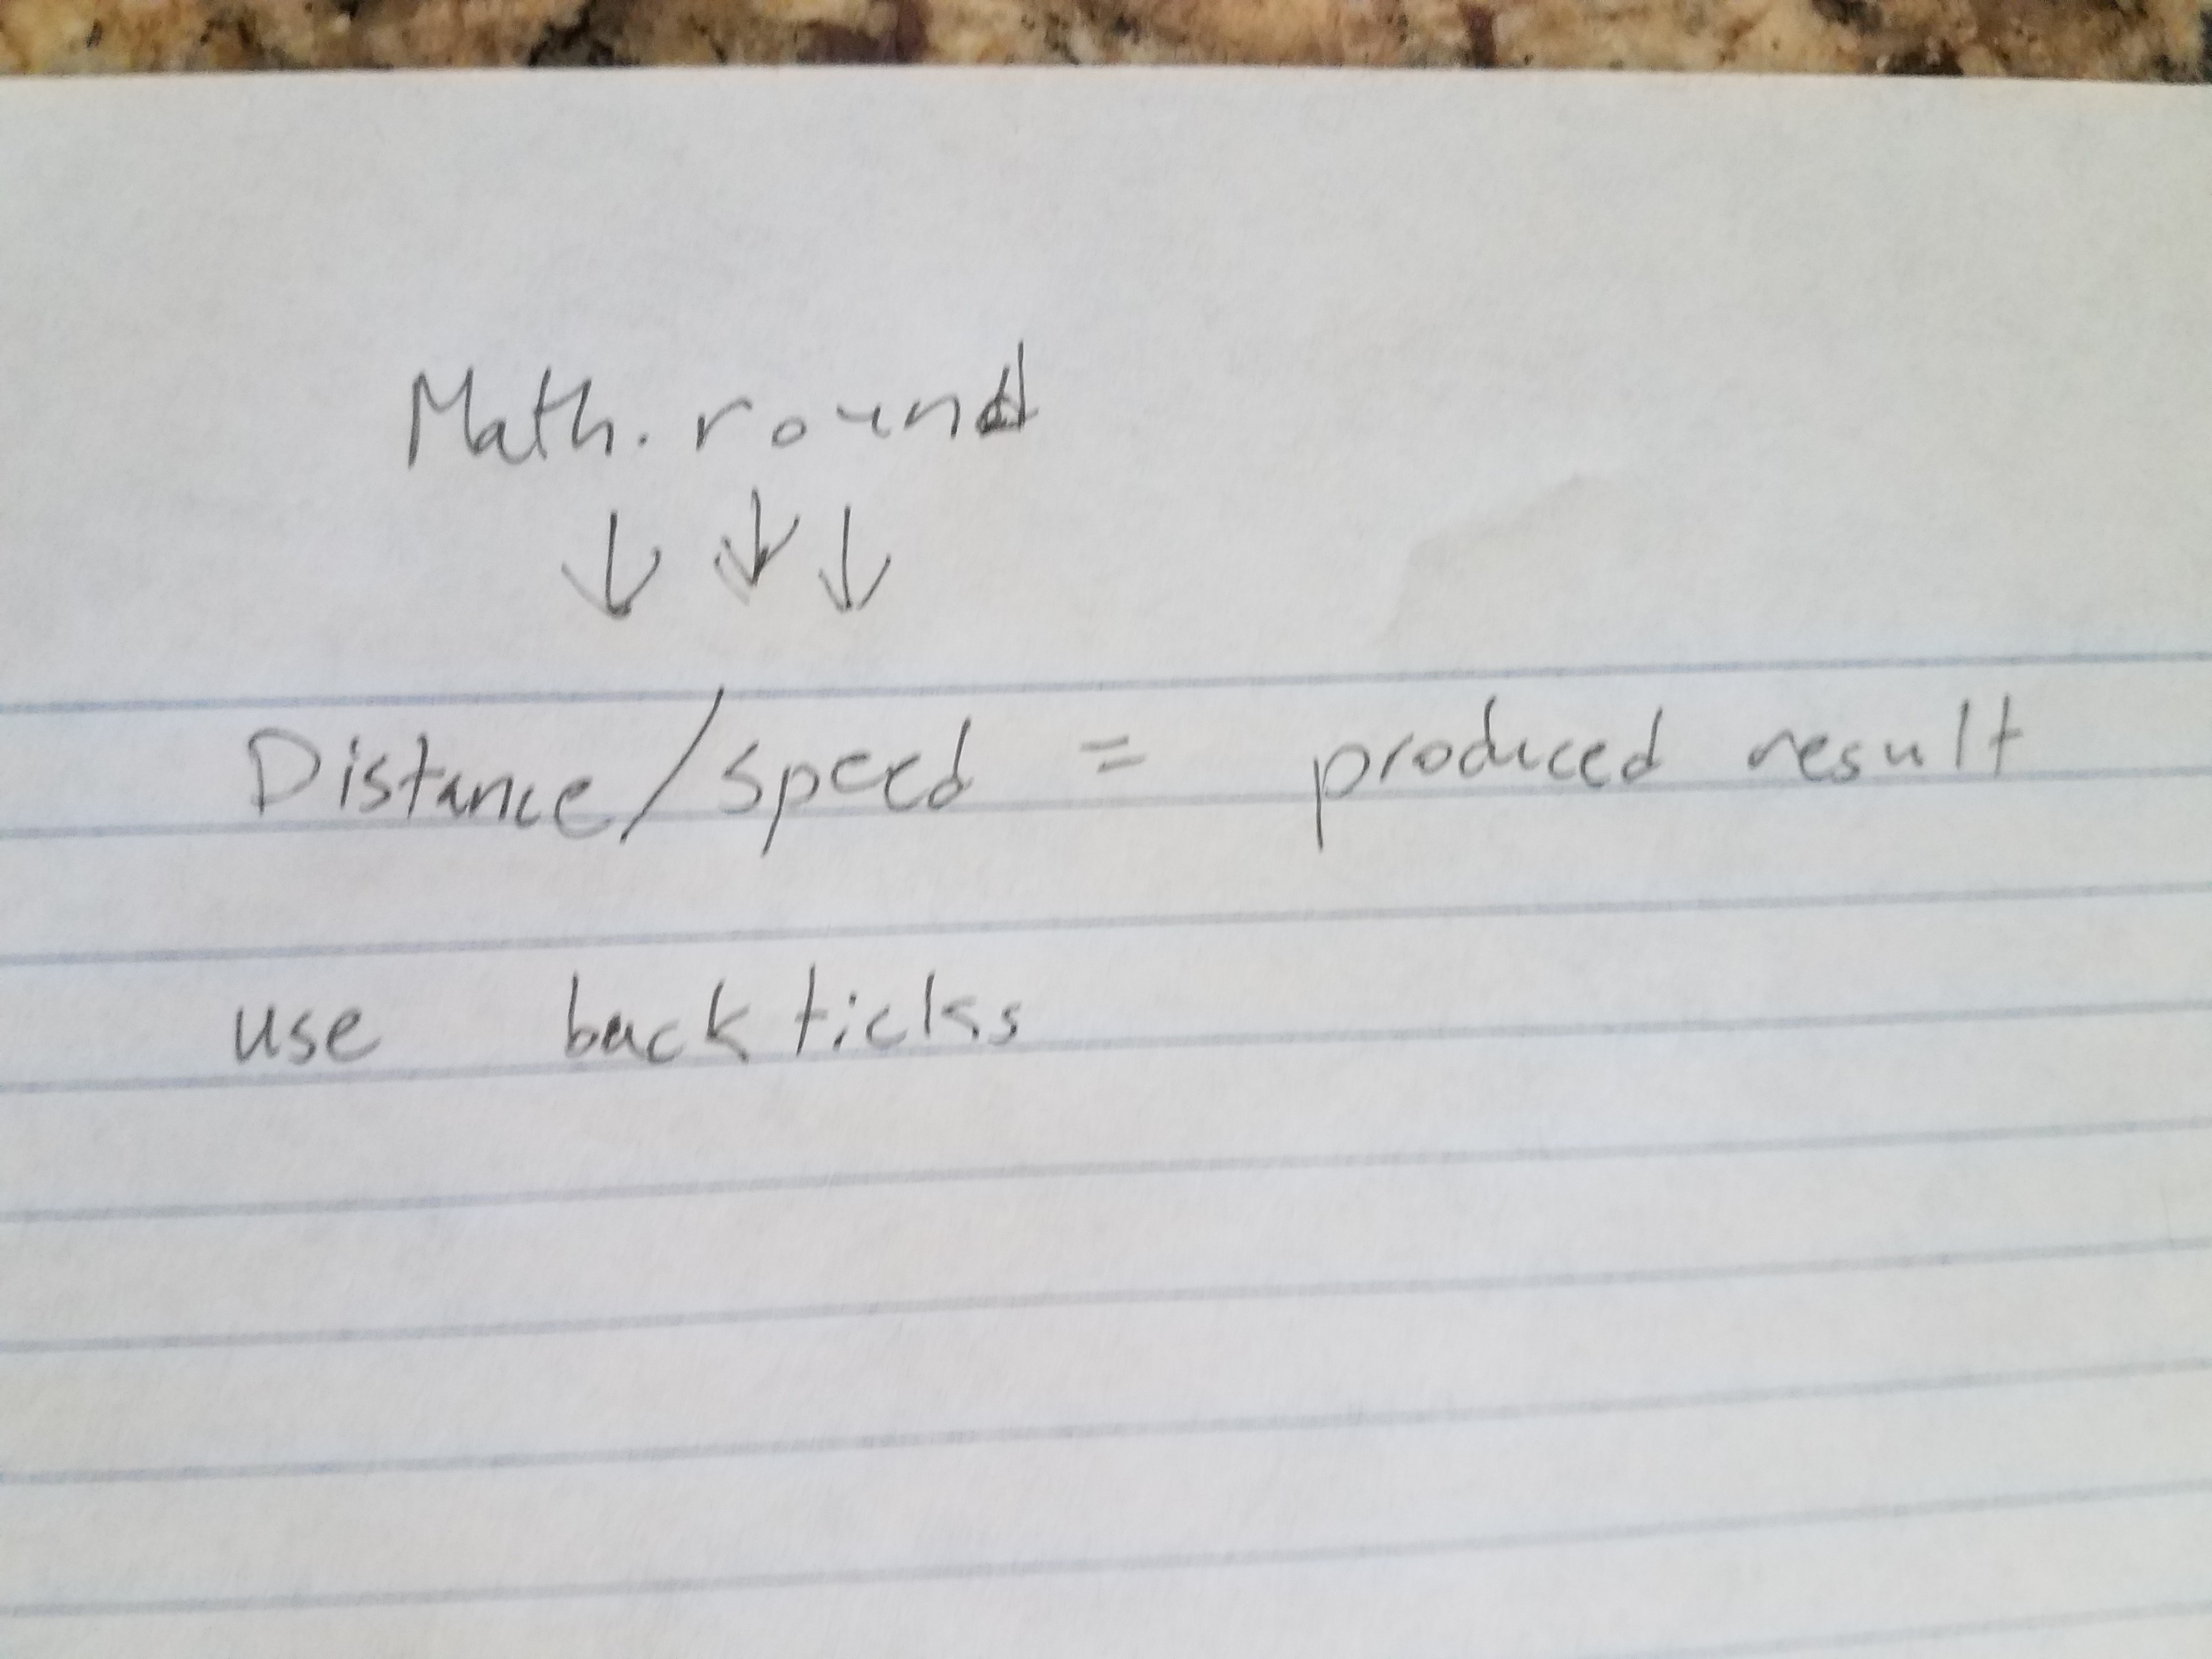 Math.round
↓ ↓ ↓
Distance/Speed = produced result
use back ticks